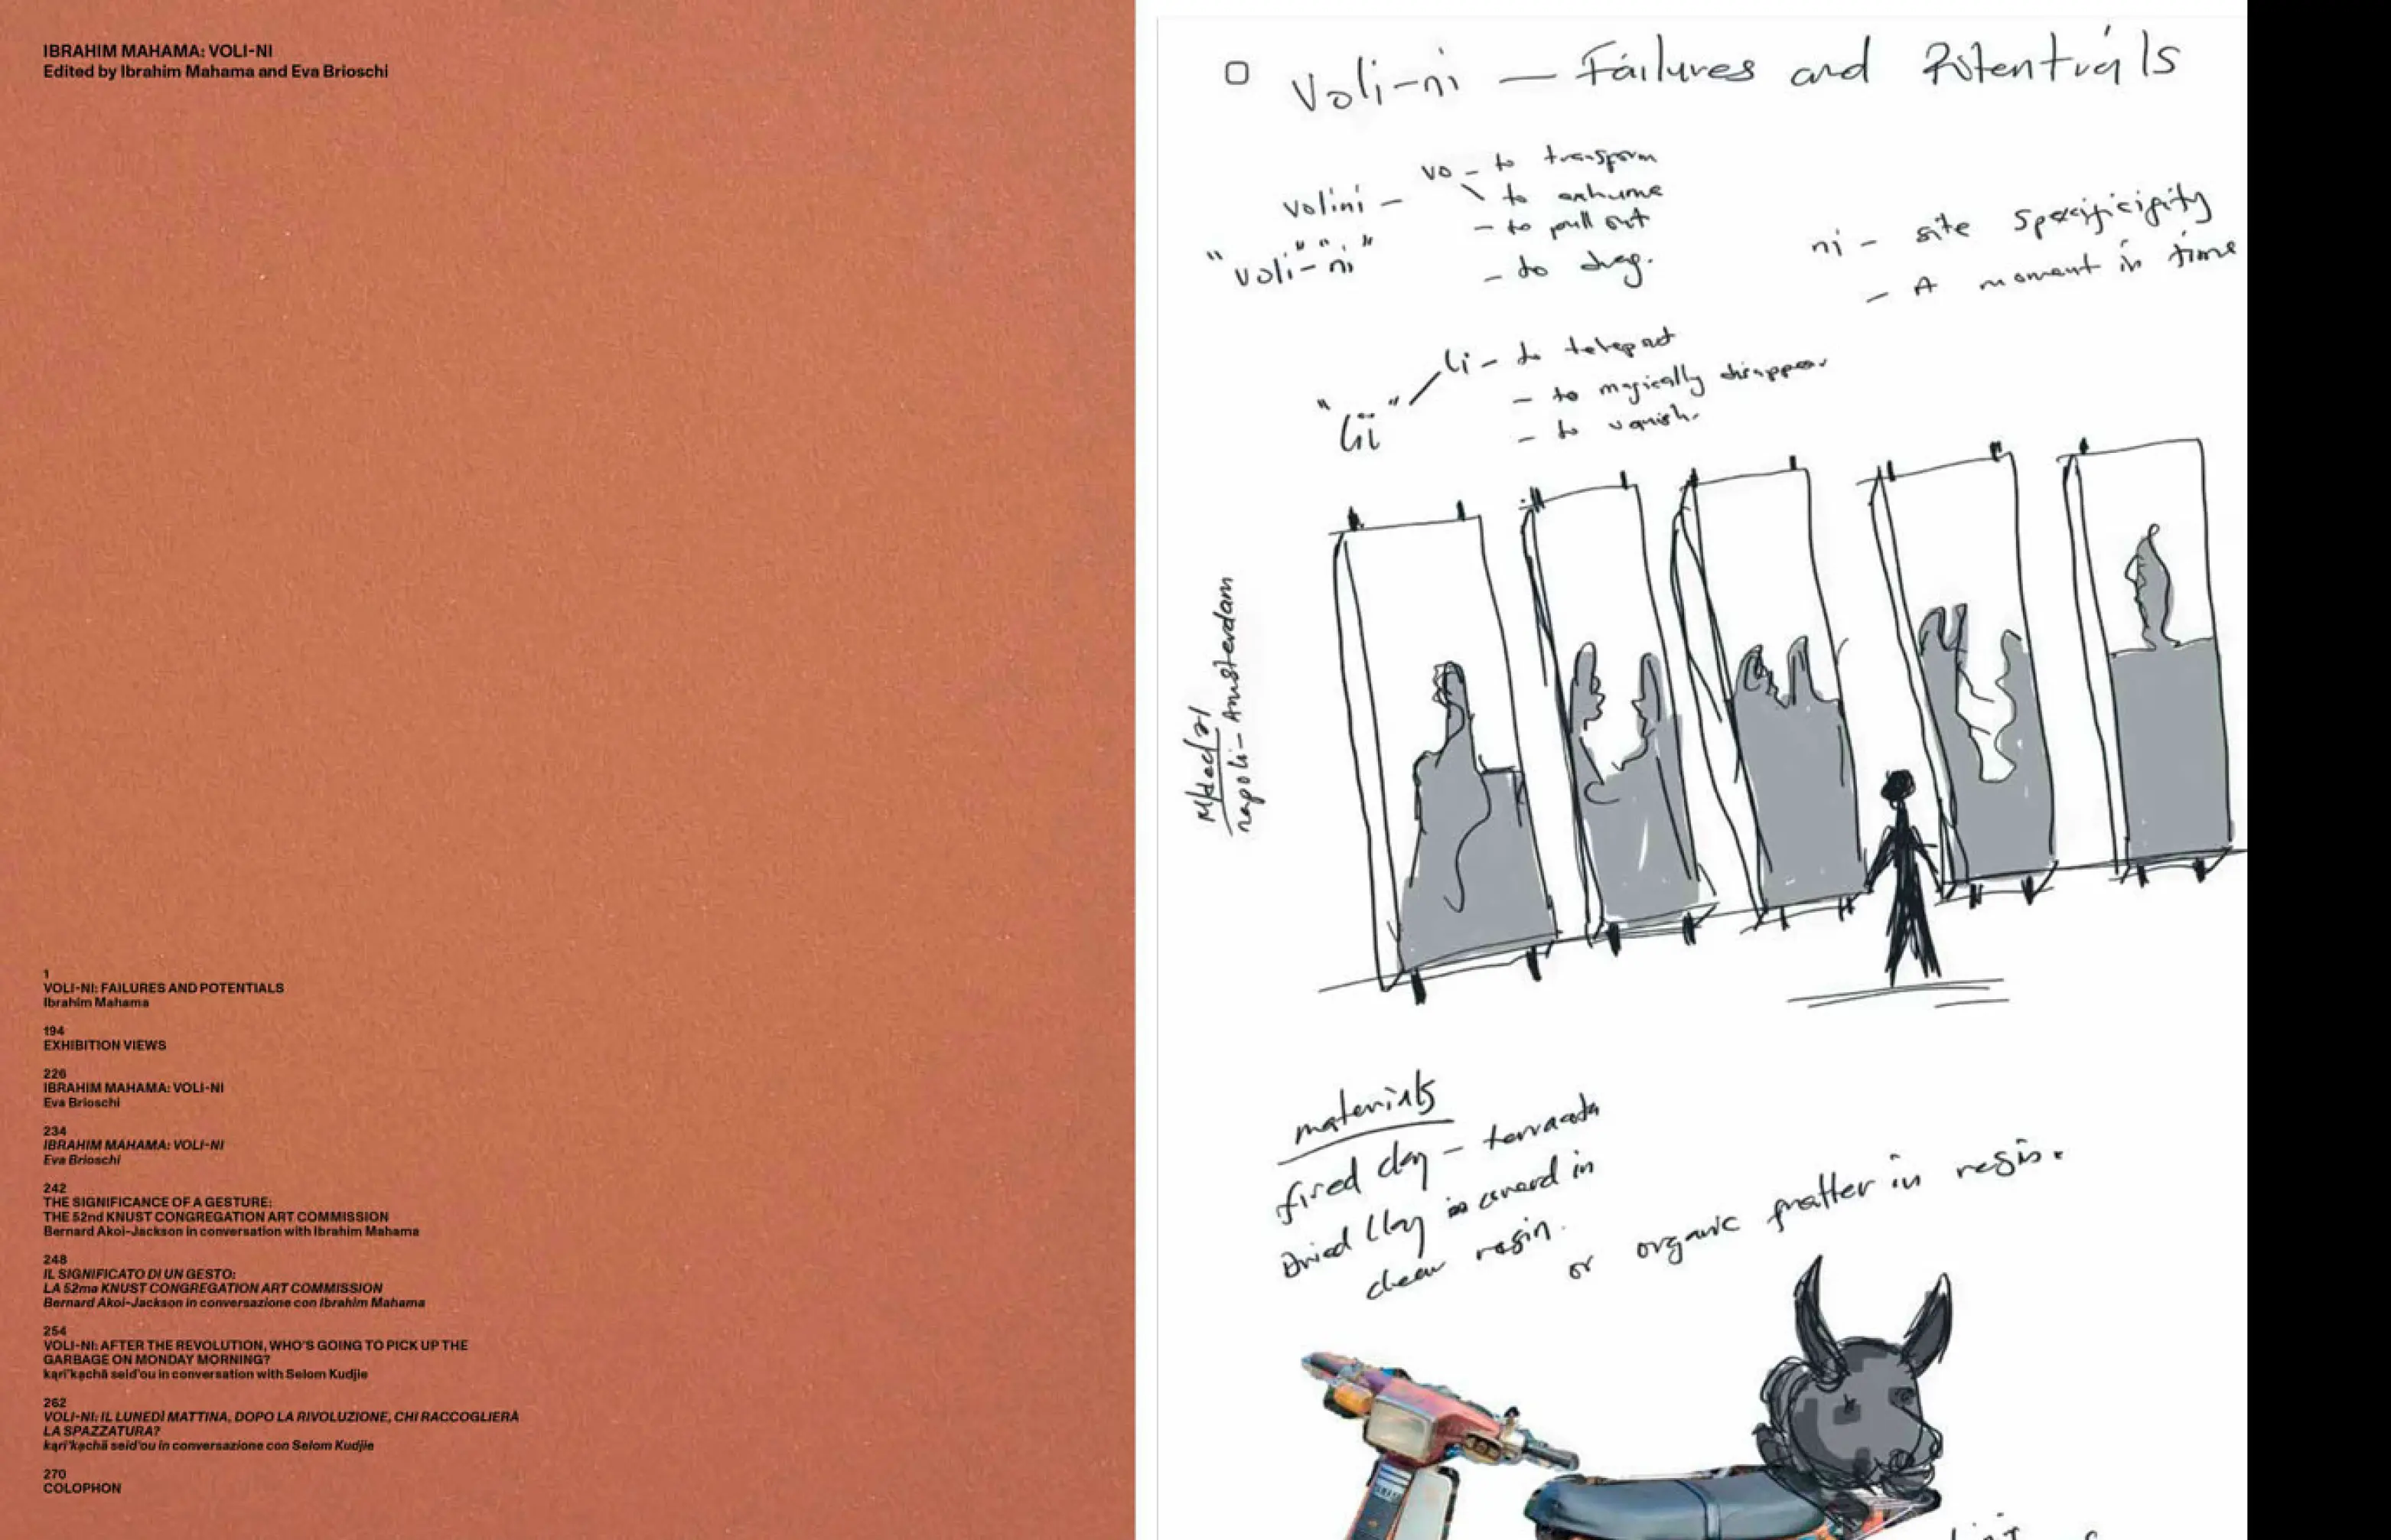 IBRAHIM MAHAMA: VOLI-NI
Edited by Ibrahim Mahama and Eva Brioschi
1
VOLI-NI: FAILURES AND POTENTIALS
Ibrahim Mahama
194
EXHIBITION VIEWS
226
IBRAHIM MAHAMA: VOLI-NI
Eva Brioschi
234
IBRAHIM MAHAMA: VOLI-NI
Eva Brioschi
242
THE SIGNIFICANCE OF A GESTURE:
THE 52nd KNUST CONGREGATION ART COMMISSION
Bernard Akoi-Jackson in conversation with Ibrahim Mahama
248
IL SIGNIFICATO DI UN GESTO:
LA 52ma KNUST CONGREGATION ART COMMISSION
Bernard Akoi-Jackson in conversazione con Ibrahim Mahama
254
VOLI-NI: AFTER THE REVOLUTION, WHO'S GOING TO PICK UP THE
GARBAGE ON MONDAY MORNING?
kąrî'kạchä seid'ou in conversation with Selom Kudjie
262
VOLI-NI: IL LUNEDÌ MATTINA, DOPO LA RIVOLUZIONE, CHI RACCOGLIERÀ
LA SPAZZATURA?
kąrî'kạchä seid'ou in conversazione con Selom Kudjie
270
COLOPHON
Voli-ni — Failures and Potentials
volini - vo - to transform
\ to exhume
- to pull out
- to drag.
"voli-ni"
ni - site
- A moment in time
"lii" li - to teleport
- to magically disappear
- to vanish.
napoli - Amsterdam
materials
fired clay - terracota
Dried Clay in
clear resin.
or organic matter in resin.